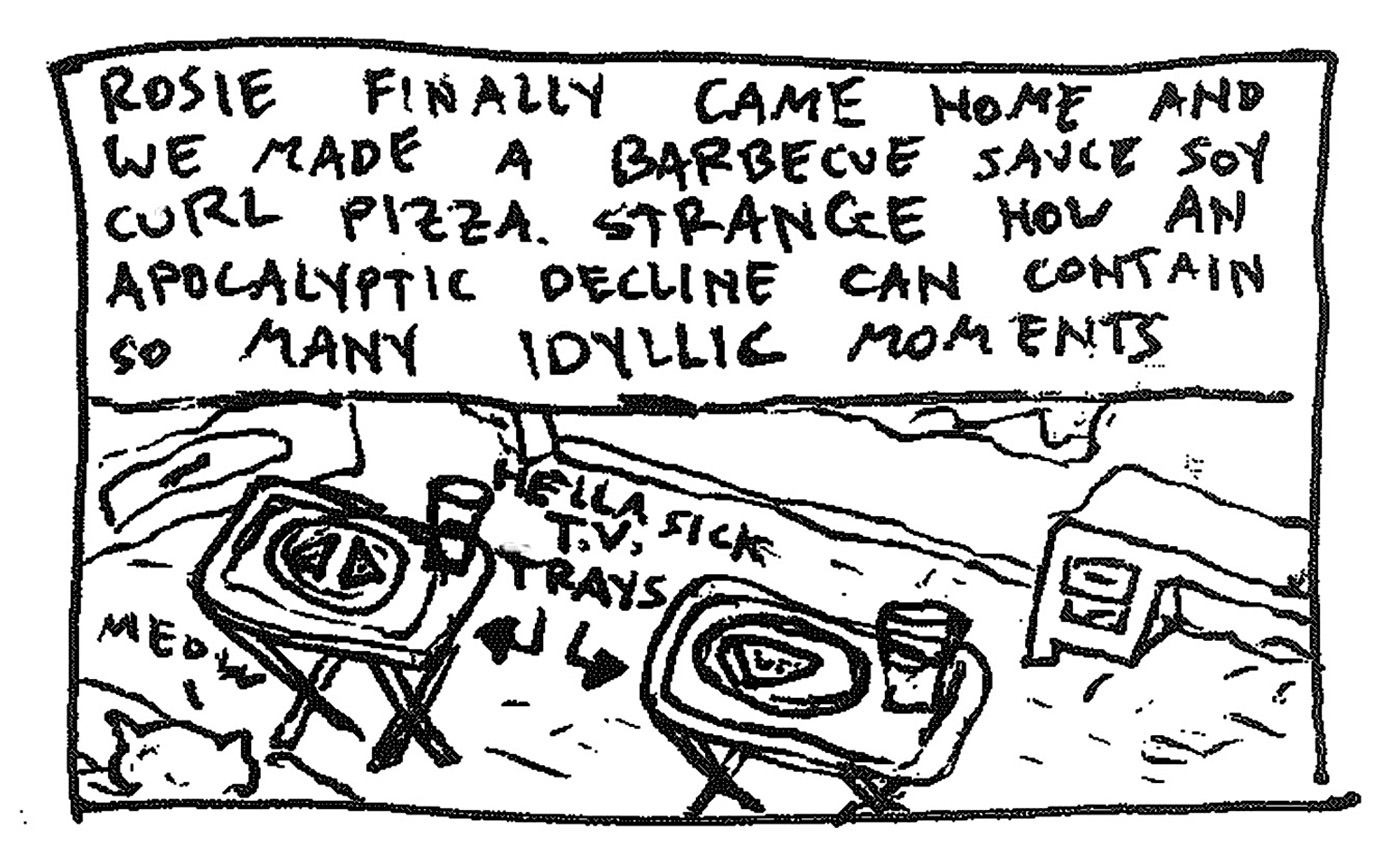 ROSIE FINALLY CAME HOME AND
WE MADE A BARBECUE SAUCE SOY
CURL PIZZA. STRANGE HOW AN
APOCALYPTIC DECLINE CAN CONTAIN
SO MANY IDYLLIC MOMENTS
HELLA
T.V. SICK
TRAYS
MEOW